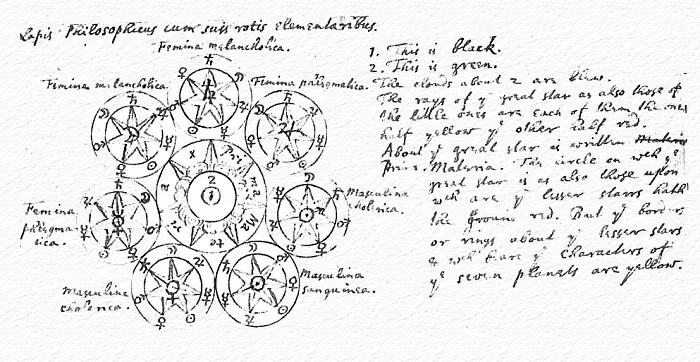 Lapis Philosophicus cum suis rotis elementaribus.
Femina melancholica.
Femina melancholica.
Femina phlegmatica.
Femina
phlegma-
tica.
Masculina
cholerica.
Masculina
cholerica.
Masculina
sanguinea.
Pri
ma
Ma
te
ri
a
x
2
1
1. This is black.
2. This is green.
The clouds about 2 are blew.
The rays of ye great star as also those of
the little ones are each of them the one
half yellow ye other half red.
About ye great star is written
Prima Materia. The circle on wch ye
great star is as also those upon
wch are ye lesser starrs hath
the ground red. But ye borders
or rings about ye lesser starrs
& wch bare ye characters of
ye seven planets are yellow.